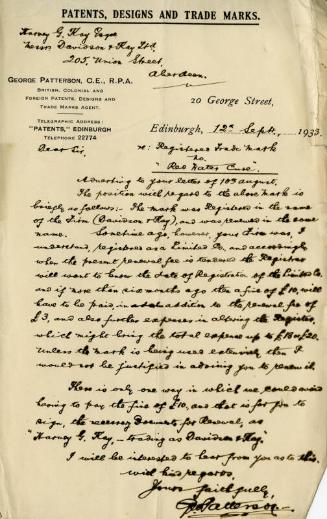 PATENTS, DESIGNS AND TRADE MARKS.
Harvey G. Kay Esqre
Messrs Davidson & Kay Ltd.
205, Union Street,
Aberdeen.
GEORGE PATTERSON, C.E., R.P.A.
BRITISH, COLONIAL AND
FOREIGN PATENTS, DESIGNS AND
TRADE MARKS AGENT.
TELEGRAPHIC ADDRESS:
"PATENTS," EDINBURGH
TELEPHONE 22774
20 George Street,
Edinburgh, 12th Sept., 1933.
Dear Sir,
re: Registered Trade Mark
no.
"Red Water Cure"
Adverting to your letter of 10th August.
The position with regard to the above mark is
briefly as follows:- The mark was Registered in the name
of the Firm (Davidson & Kay), and was renewed in the same
name. Sometime ago, however, your Firm was, I
understand, registered as a Limited Co., and accordingly
when the present renewal fee is tendered the Registrar
will want to know the date of Registration of the Limited Co.
and if more than six months ago then a fine of £10, will
have to be paid, in addition to the renewal fee of
£3, and also further expenses in altering the Register,
which might bring the total expense up to £18 or £20.
Unless the mark is being used extensively then I
would not be justified in advising you to renew it.
There is only one way in which we could avoid
having to pay the fine of £10, and that is for you to
sign, the necessary documents for Renewal, as
"Harvey G. Kay, - trading as Davidson & Kay."
I will be interested to hear from you as to this.
With kind regards,
Yours faithfully,
G. Patterson